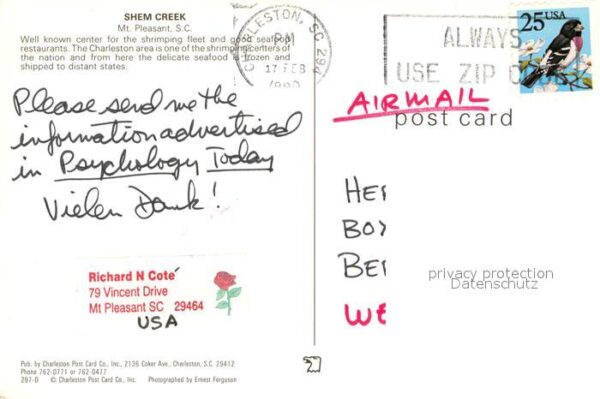 SHEM CREEK
Mt. Pleasant, S.C.
Well known center for the shrimping fleet and good seafood
restaurants. The Charleston area is one of the shrimping centers of
the nation and from here the delicate seafood is frozen and
shipped to distant states.
CHARLESTON, SC 294
PM
17 FEB
ALWAYS
USE ZIP
25USA
AIRMAIL
post card
Please send me the
information advertised
in Psychology Today
Vielen Dank!
HE
BO
BE
WE
privacy protection
Datenschutz
Richard N Coté
79 Vincent Drive
Mt Pleasant SC 29464
USA
Pub. by Charleston Post Card Co., Inc., 2136 Coker Ave., Charleston, S.C. 29412
Phone 762-0771 or 762-0477
297-D © Charleston Post Card Co., Inc. Photographed by Ernest Ferguson